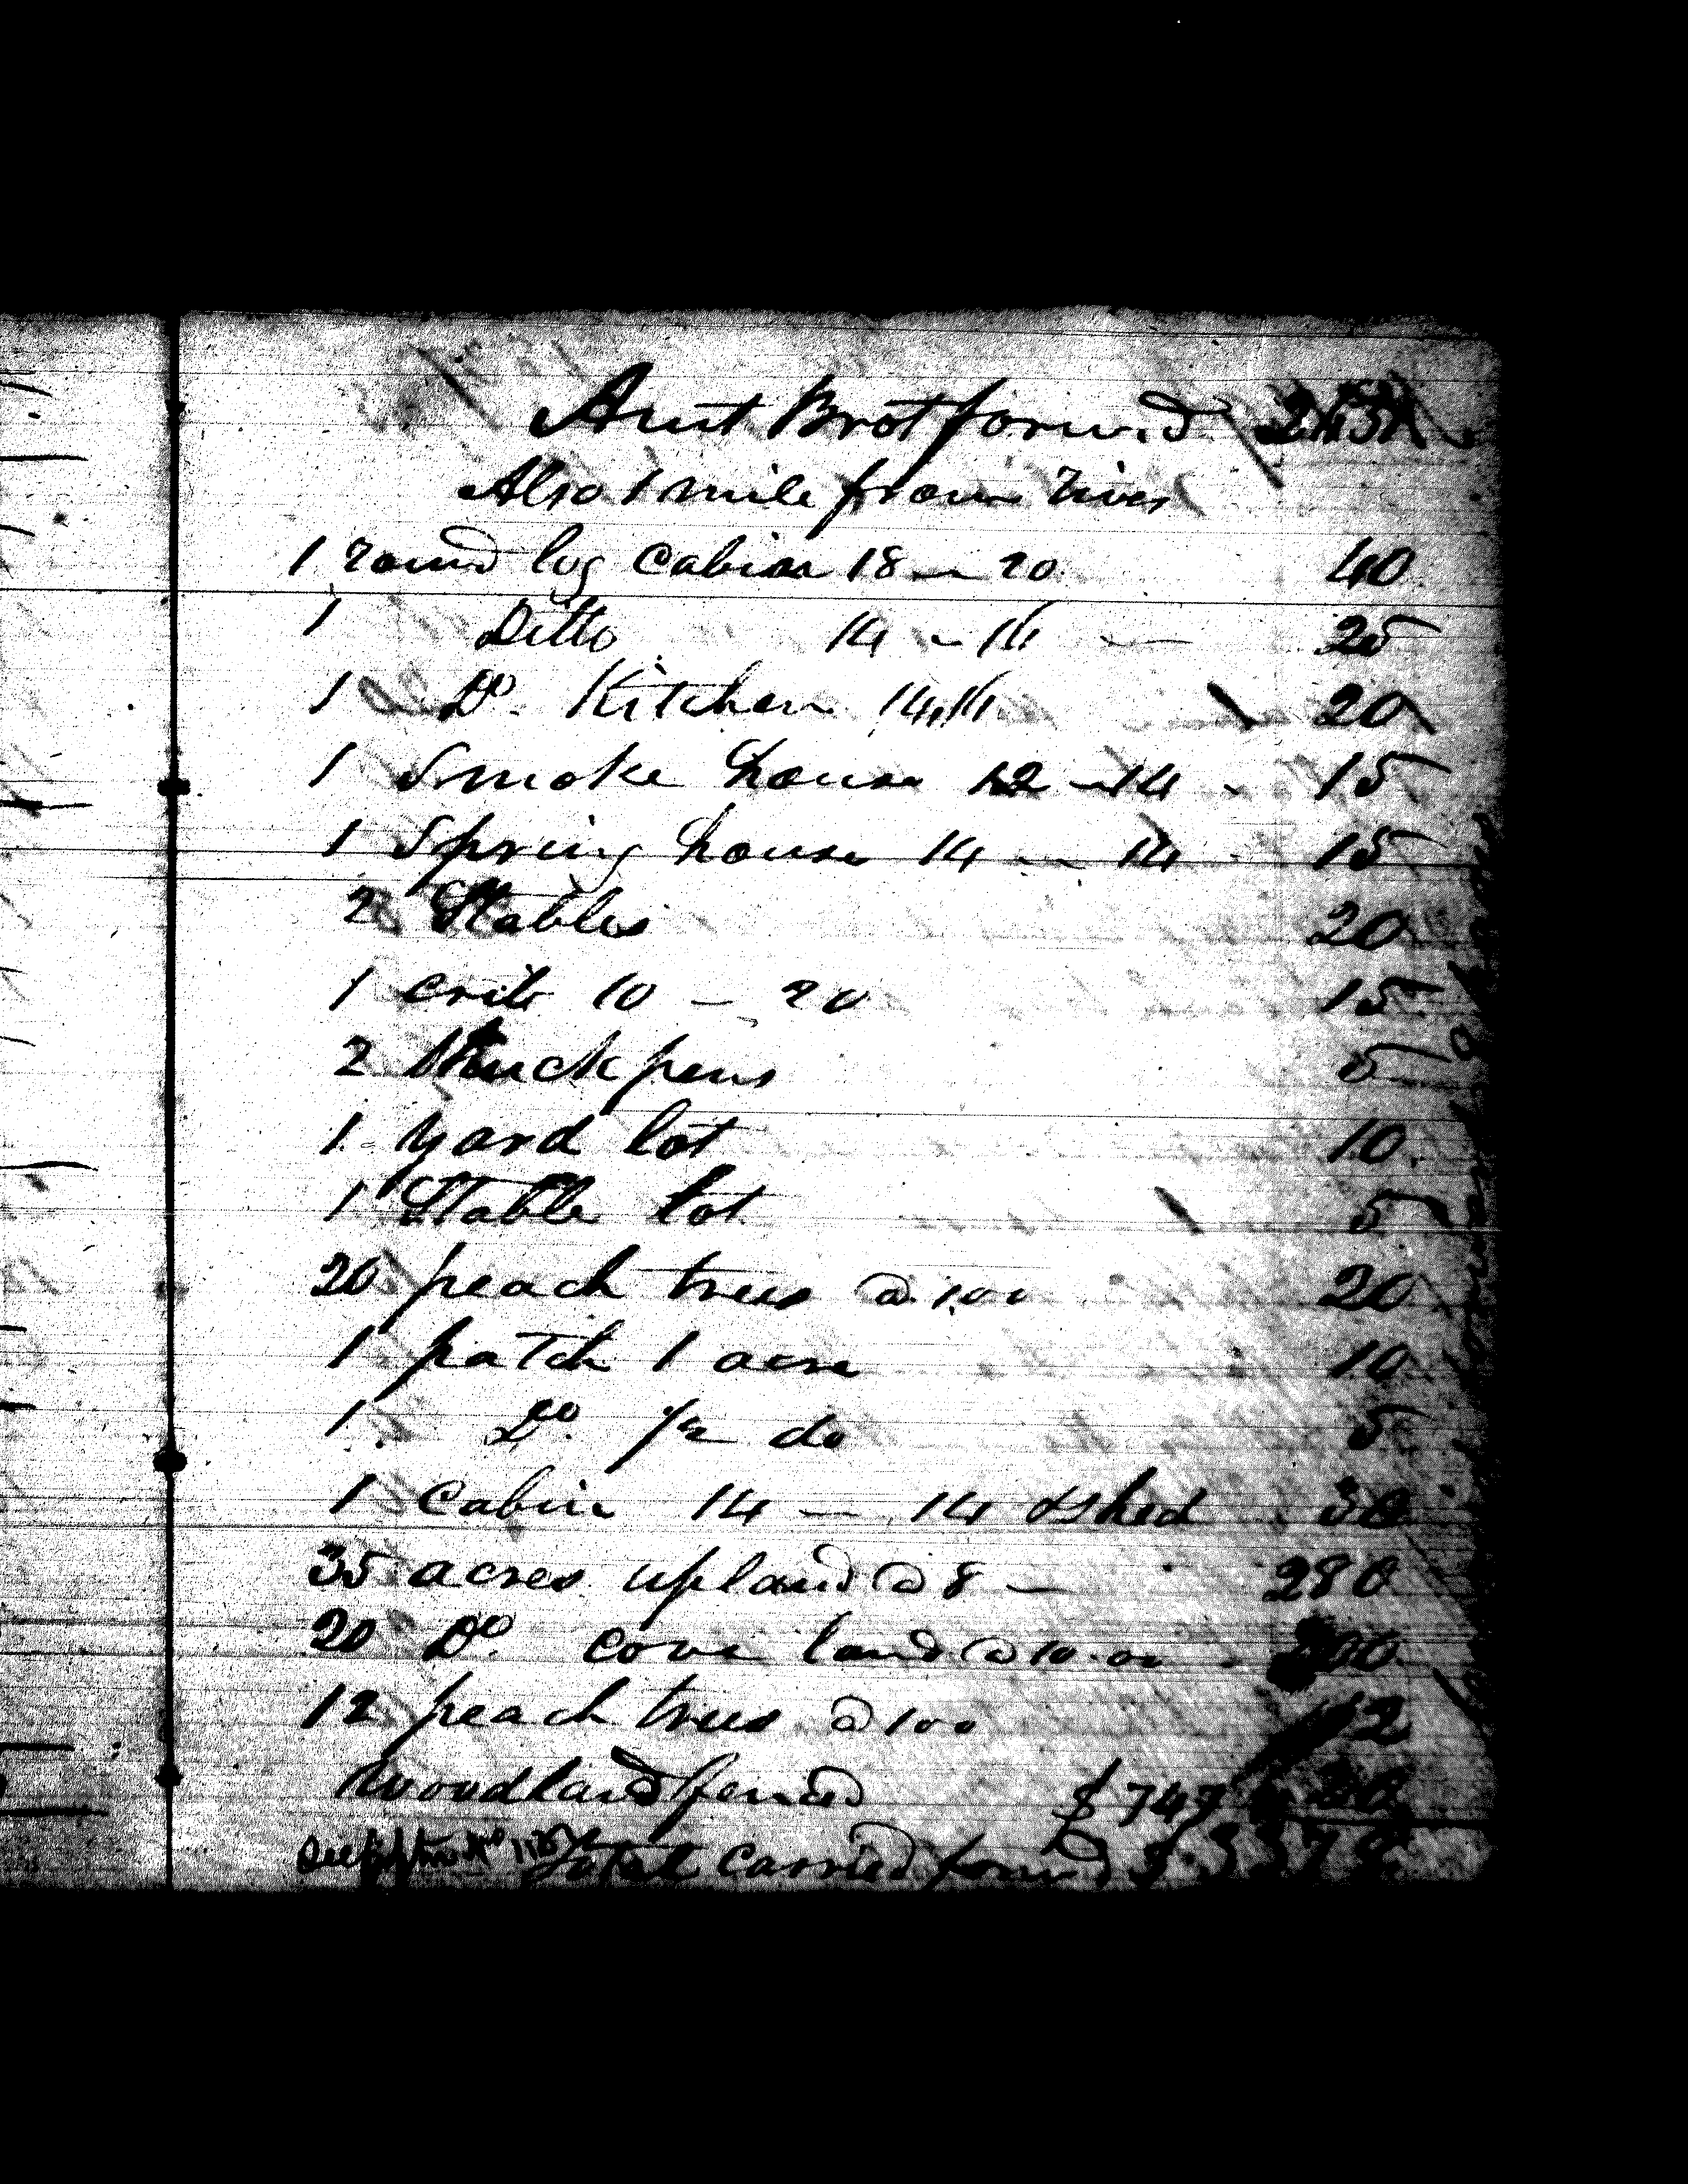 Amt Brot forward
Also 1 mile from river
1 round log Cabin 18 — 20 40
1 Ditto 14 — 14 — 25
1 Do. Kitchen 14,14 20
1 Smoke house 12 — 14 - 15
1 Spring house 14 — 14 - 15
2 Stables 20
1 crib 10 — 20 15
2 pens 5
1 yard lot 10
1 Stable lot 5
20 peach trees @ 100 20
1 patch 1 acre 10
1 Do. 1/2 do 5
1 Cabin 14 — 14 & Shed
35 acres upland @ 8 — 280
20 Do. cove land @ 10.00 - 200
12 peach trees @ 100 12
Woodland fenced $747
Total carried forwd $